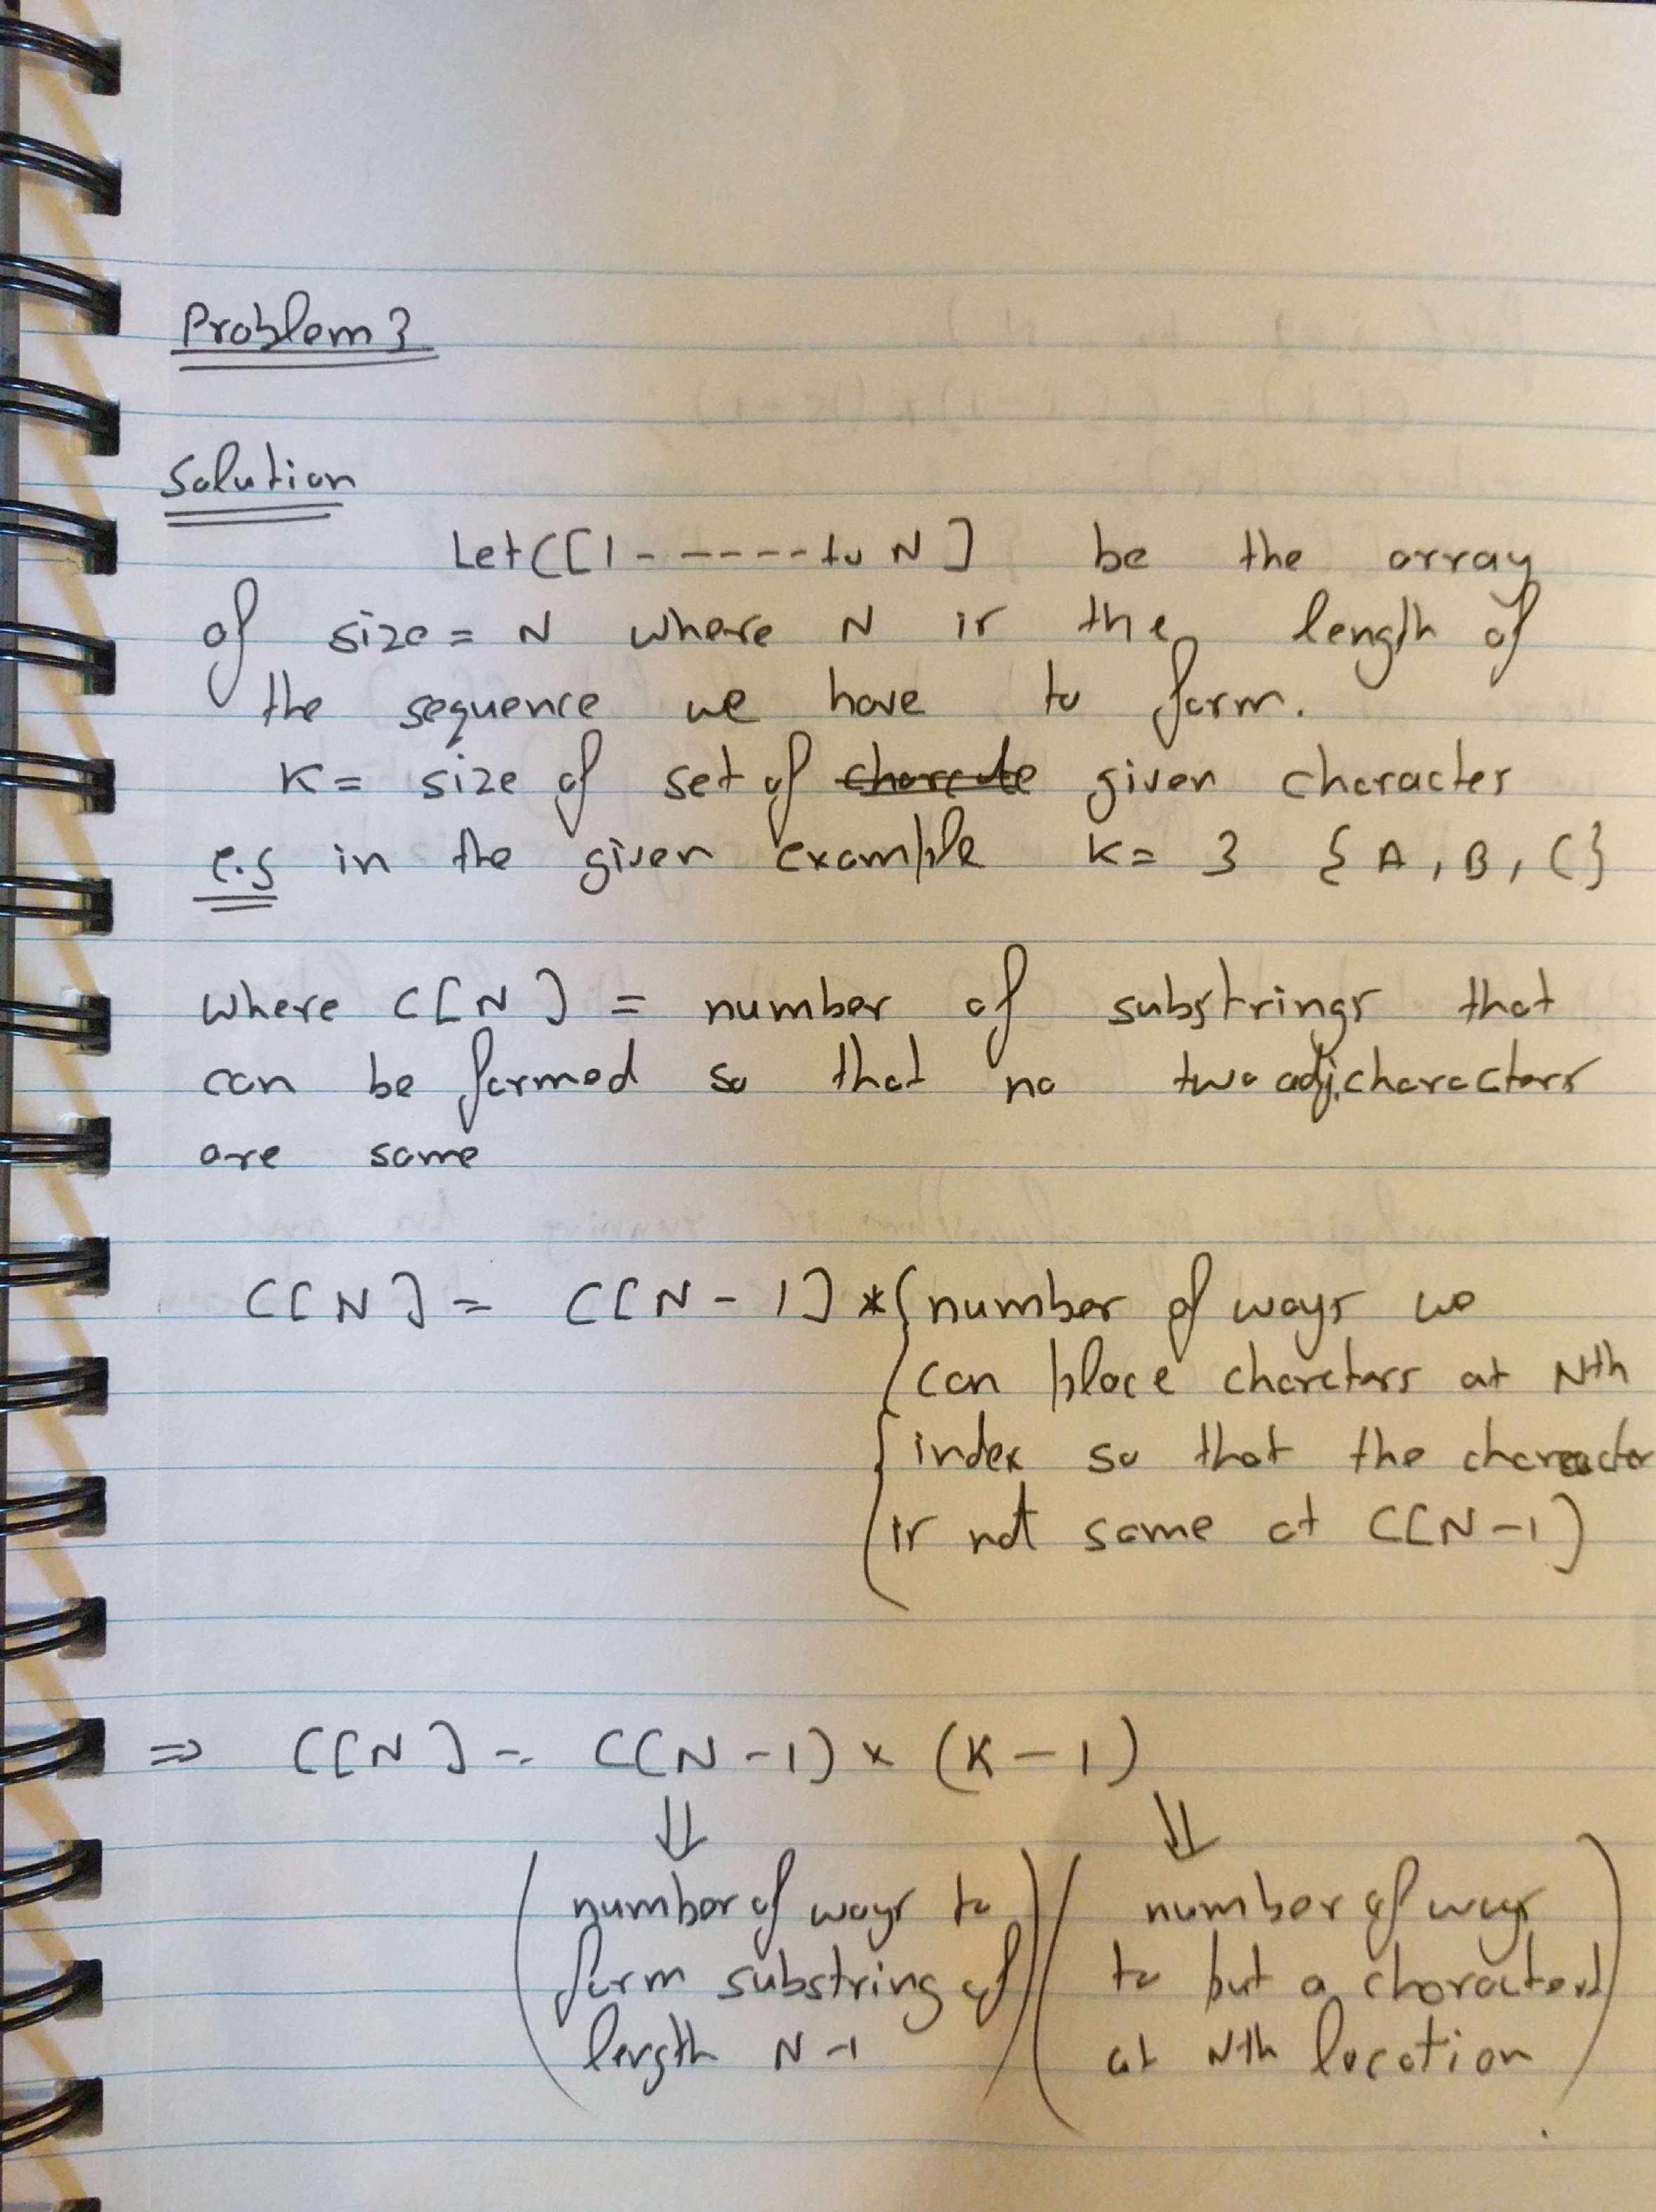 Problem 3
Solution
Let C[1 - - - - - - to N] be the array
of size = N where N is the length of
the sequence we have to form.
K = size of set of given character
e.g in the given example K = 3 {A, B, C}
where C[N] = number of substrings that
can be formed so that no two adj. characters
are same
C[N] = C[N-1] * { number of ways we
can place charcters at Nth
index so that the character
is not same at C[N-1]
⇒ C[N] = C[N-1] x (K-1)
⇓ ⇓
(number of ways to) (number of ways
form substring of to put a character
length N-1 at Nth location)